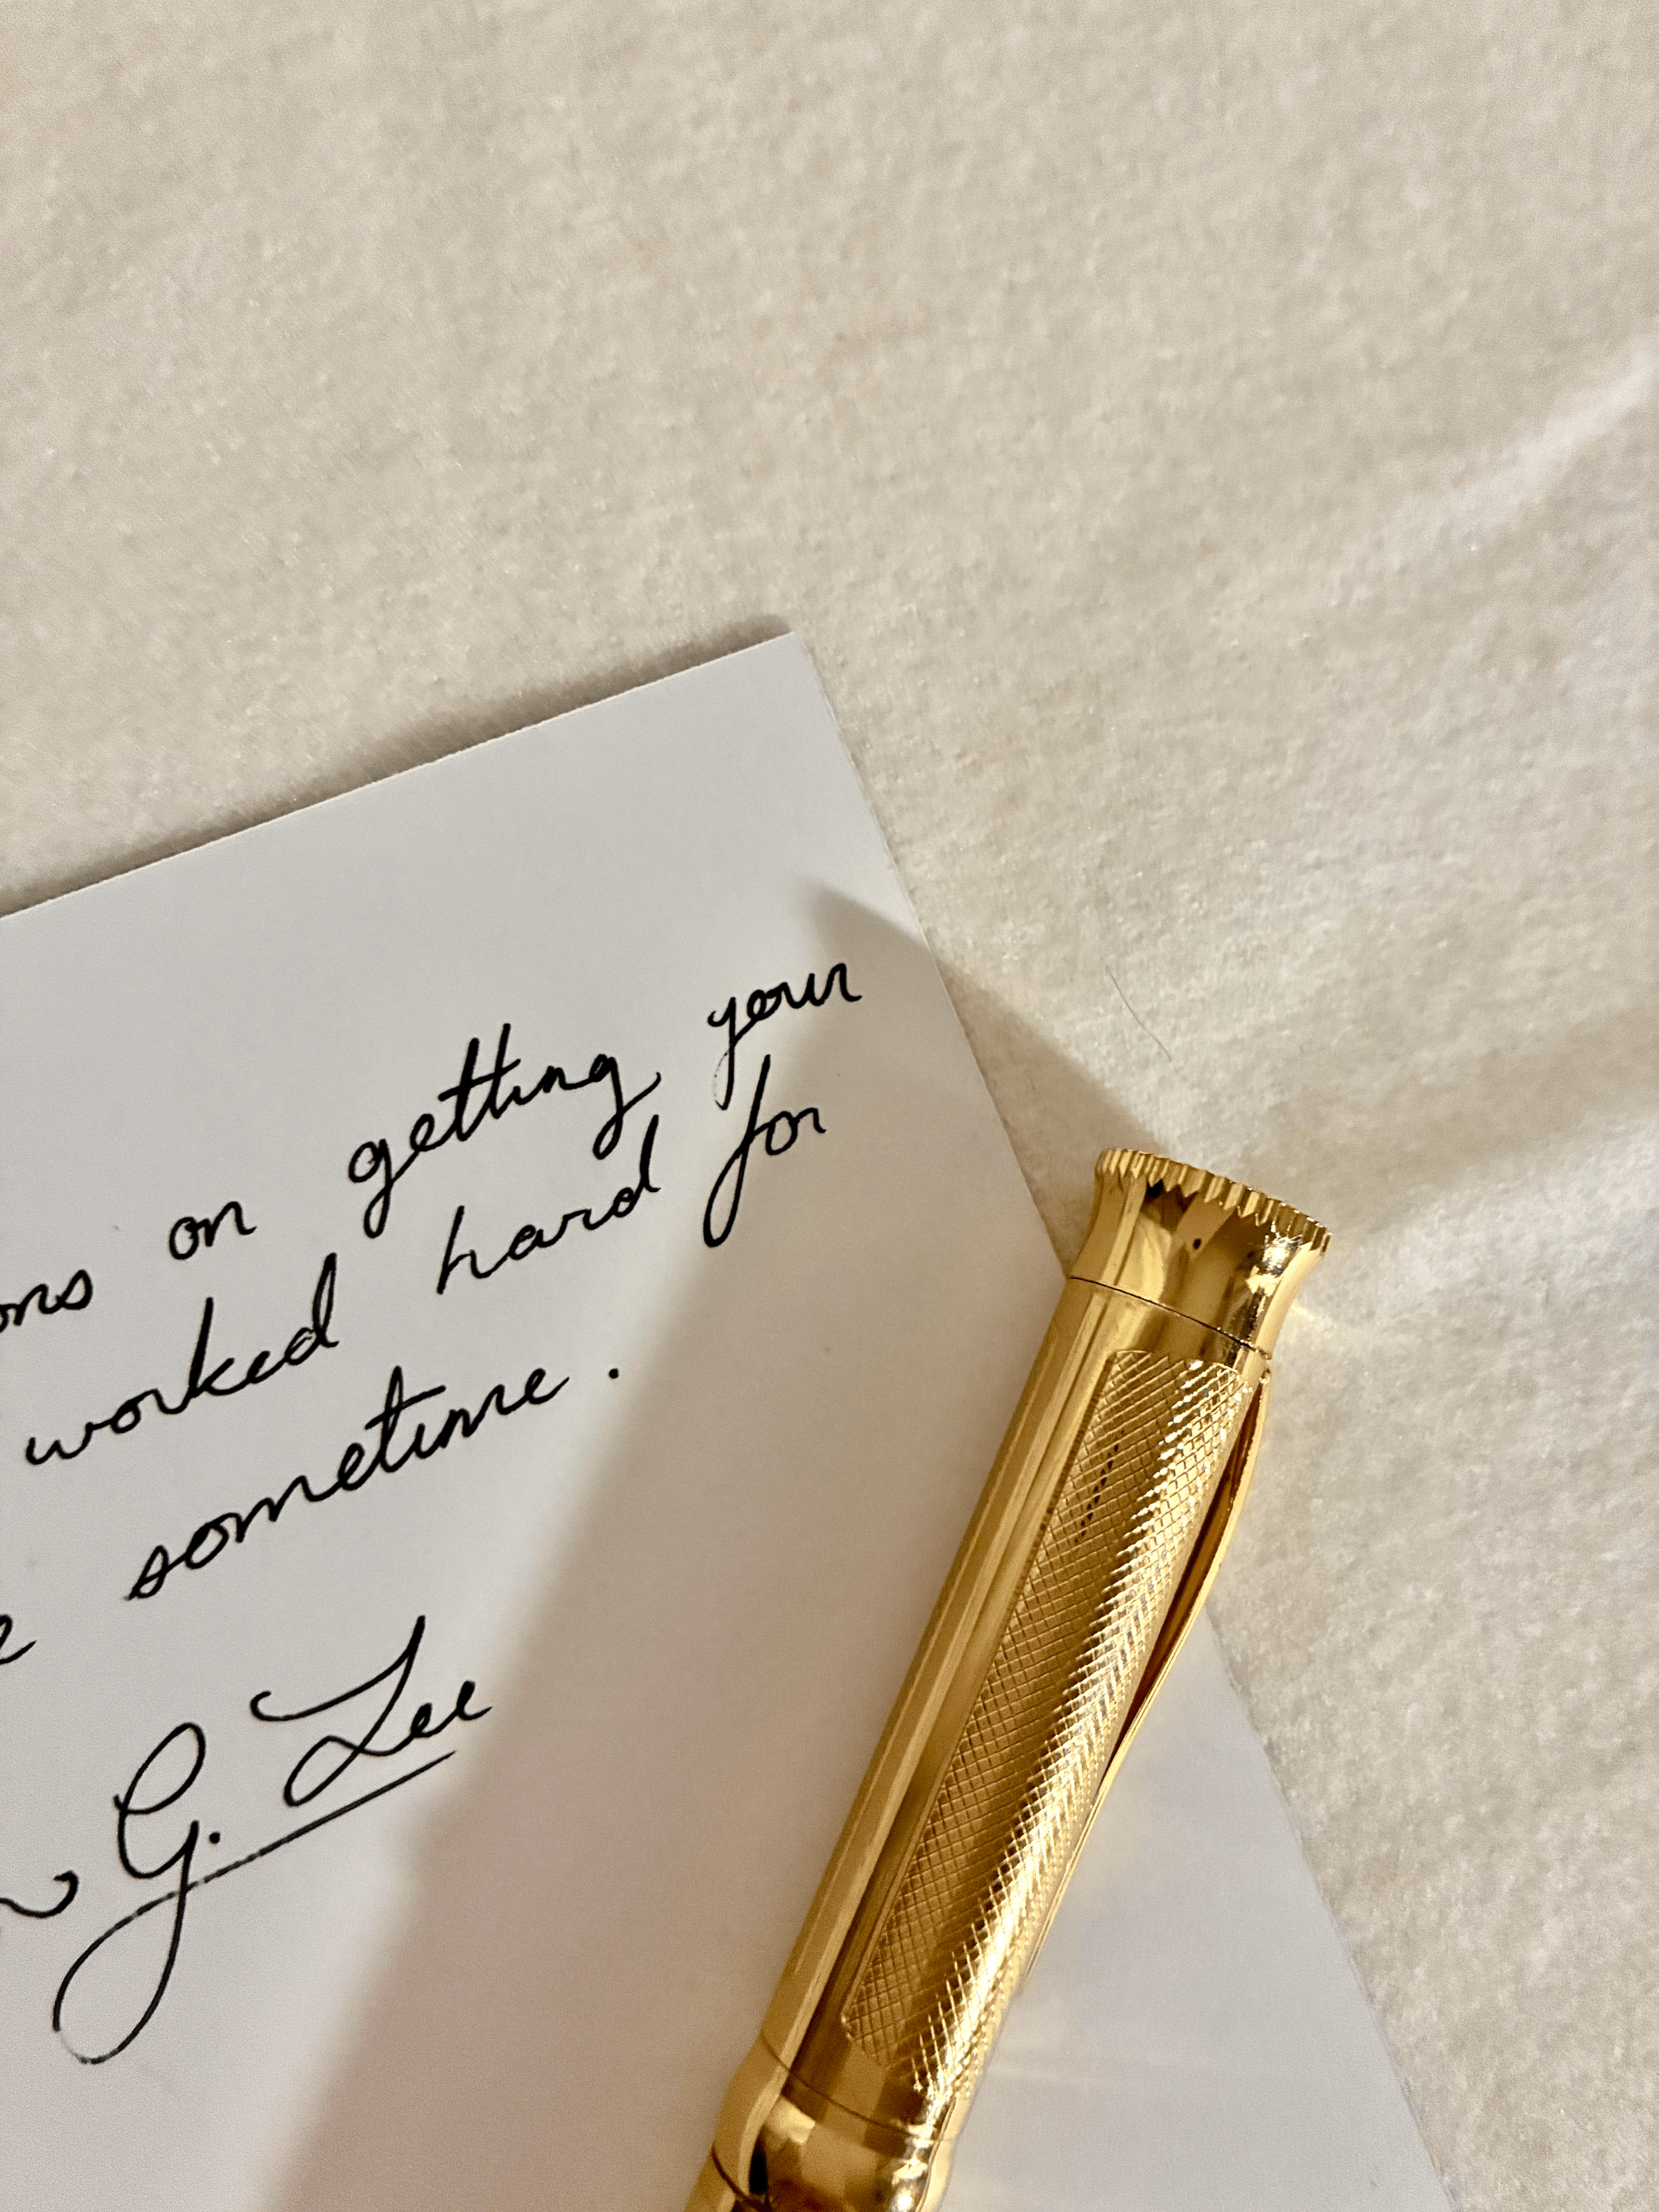 ons on getting your
worked hard for
e sometime.
G. Lee